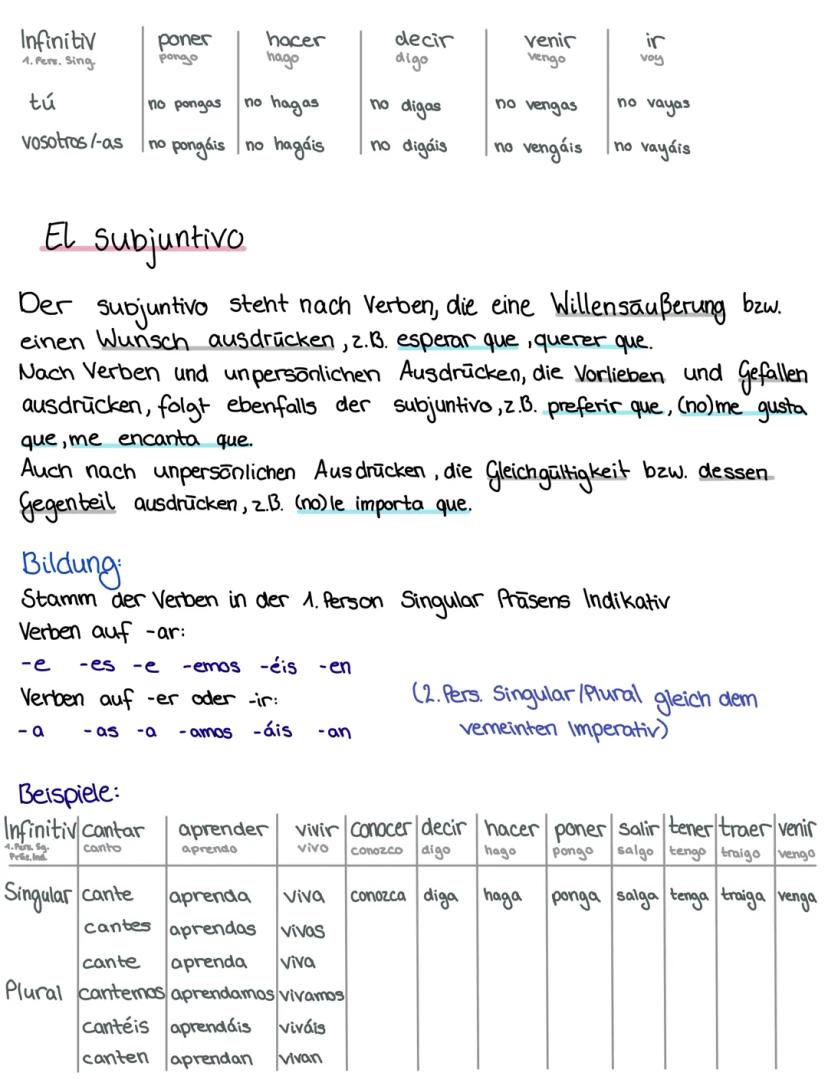 Infinitiv poner hacer decir venir ir
1. Pers. Sing. pongo hago digo vengo voy
tú no pongas no hagas no digas no vengas no vayas
vosotros/-as no pongáis no hagáis no digáis no vengáis no vayáis
El subjuntivo
Der subjuntivo steht nach Verben, die eine Willensäußerung bzw.
einen Wunsch ausdrücken, z.B. esperar que, querer que.
Nach Verben und unpersönlichen Ausdrücken, die Vorlieben und Gefallen
ausdrücken, folgt ebenfalls der subjuntivo, z.B. preferir que, (no) me gusta
que, me encanta que.
Auch nach unpersönlichen Ausdrücken, die Gleichgültigkeit bzw. dessen
Gegenteil ausdrücken, z.B. (no) le importa que.
Bildung:
Stamm der Verben in der 1. Person Singular Präsens Indikativ
Verben auf -ar:
-e -es -e -emos -éis -en
Verben auf -er oder -ir:
-a -as -a -amos -áis -an
(2. Pers. Singular/Plural gleich dem
verneinten Imperativ)
Beispiele:
Infinitiv cantar aprender vivir conocer decir hacer poner salir tener traer venir
1. Pers. Sg. canto aprendo vivo conozco digo hago pongo salgo tengo traigo vengo
Präs. Ind.
Singular cante aprenda viva conozca diga haga ponga salga tenga traiga venga
cantes aprendas vivas
cante aprenda viva
Plural cantemos aprendamos vivamos
cantéis aprendáis viváis
canten aprendan vivan